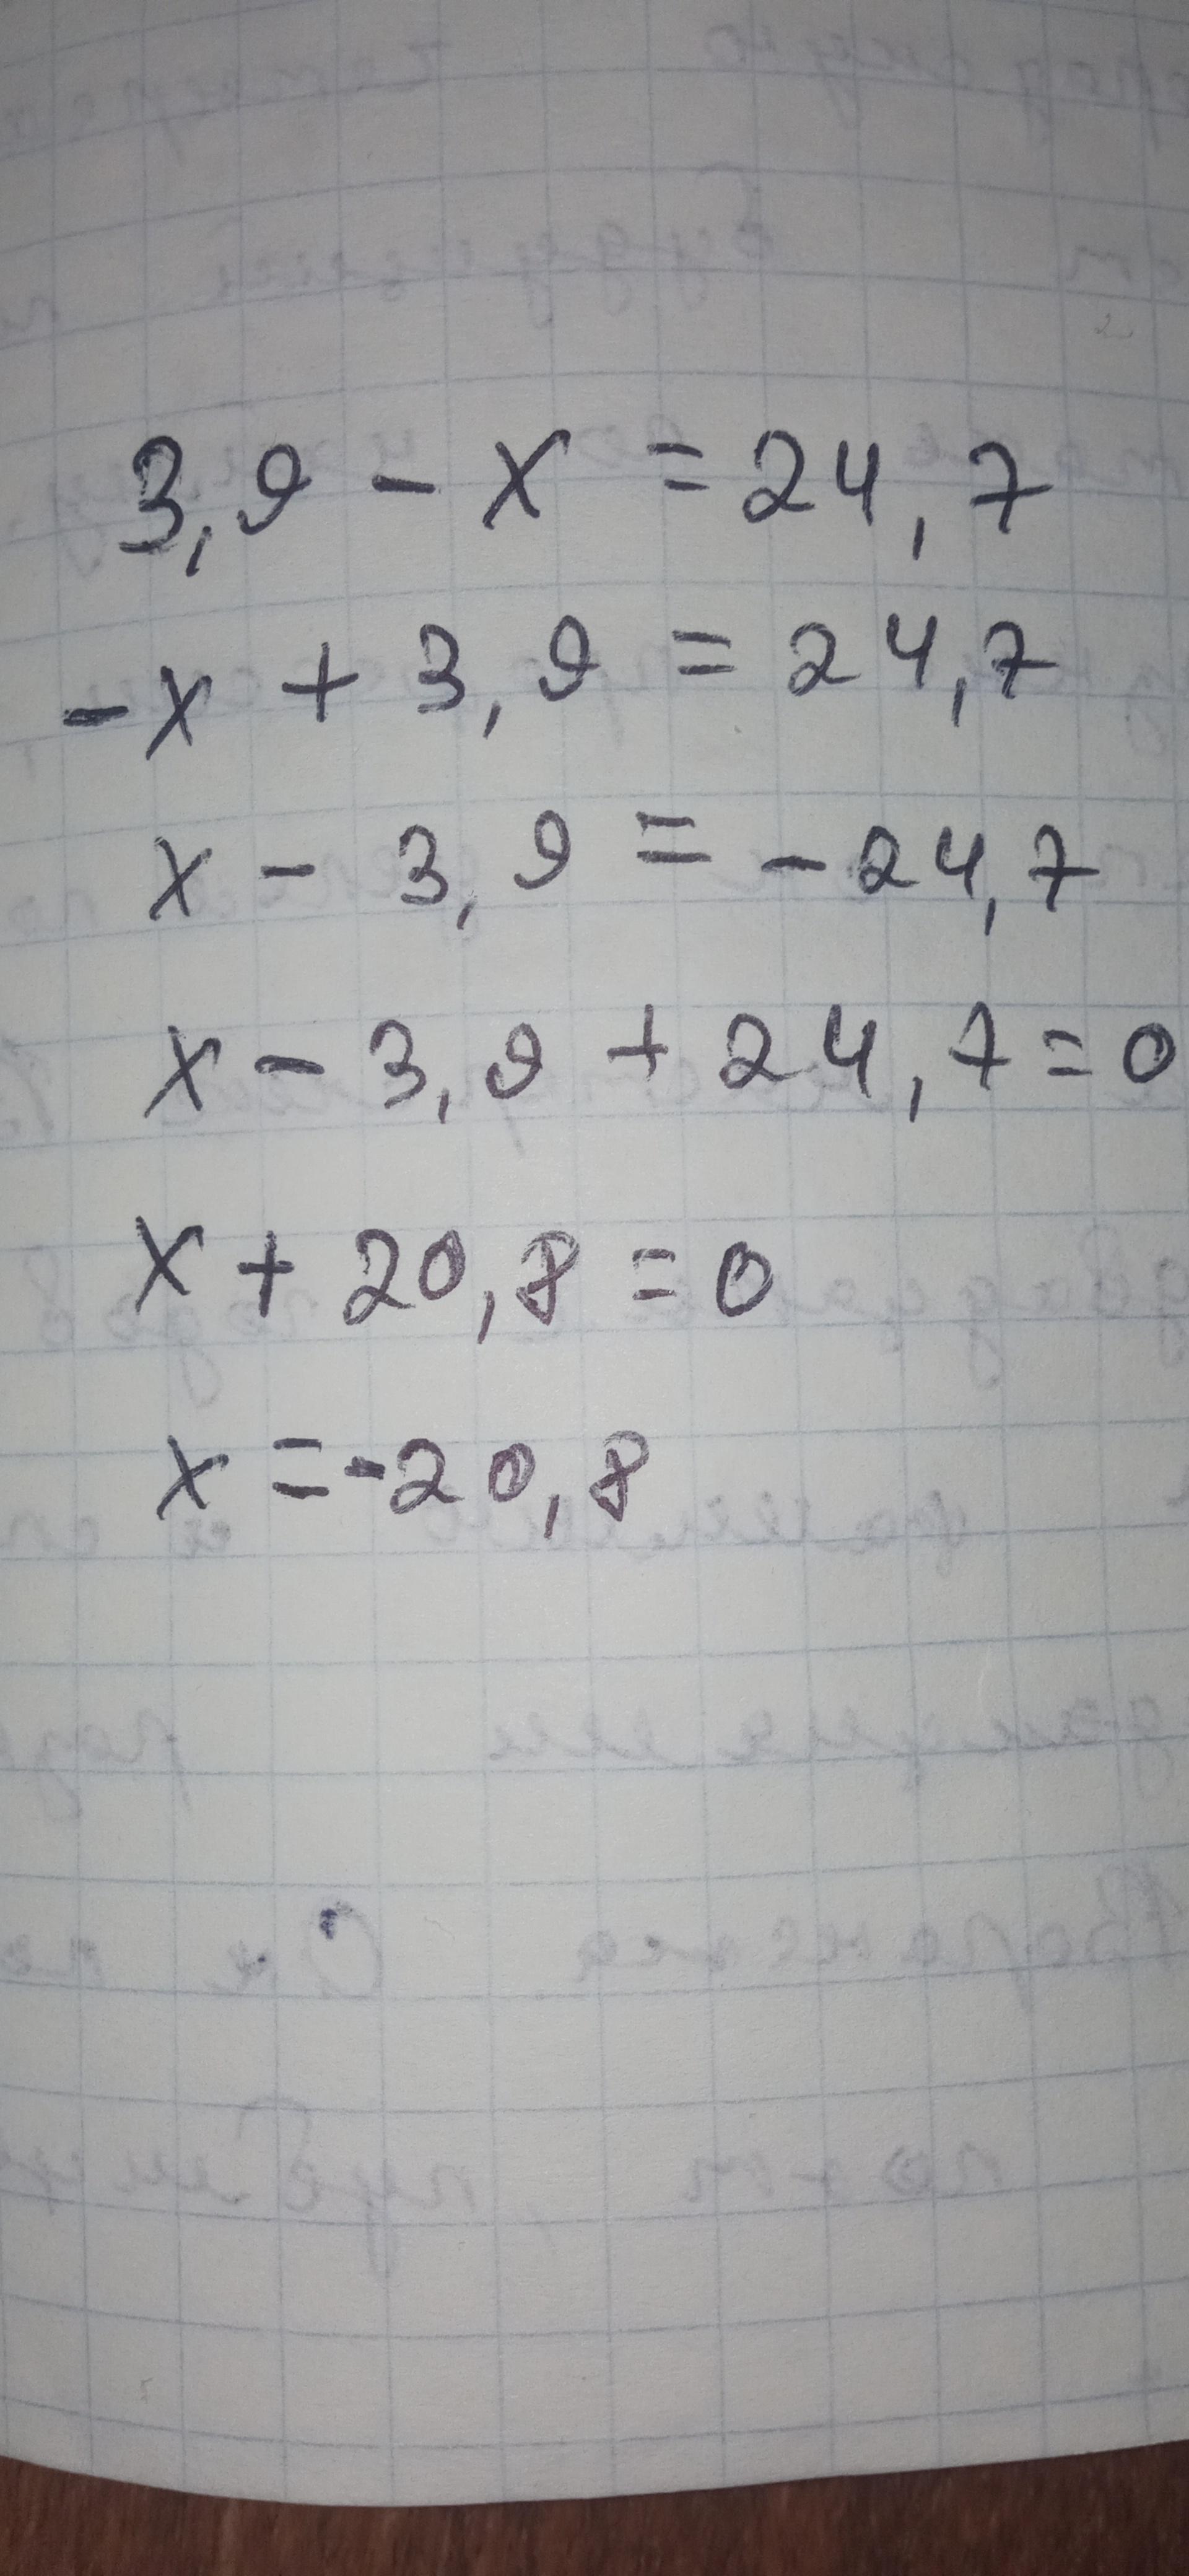 3,9 - x = 24,7
-x + 3,9 = 24,7
x - 3,9 = -24,7
x - 3,9 + 24,7 = 0
x + 20,8 = 0
x = -20,8